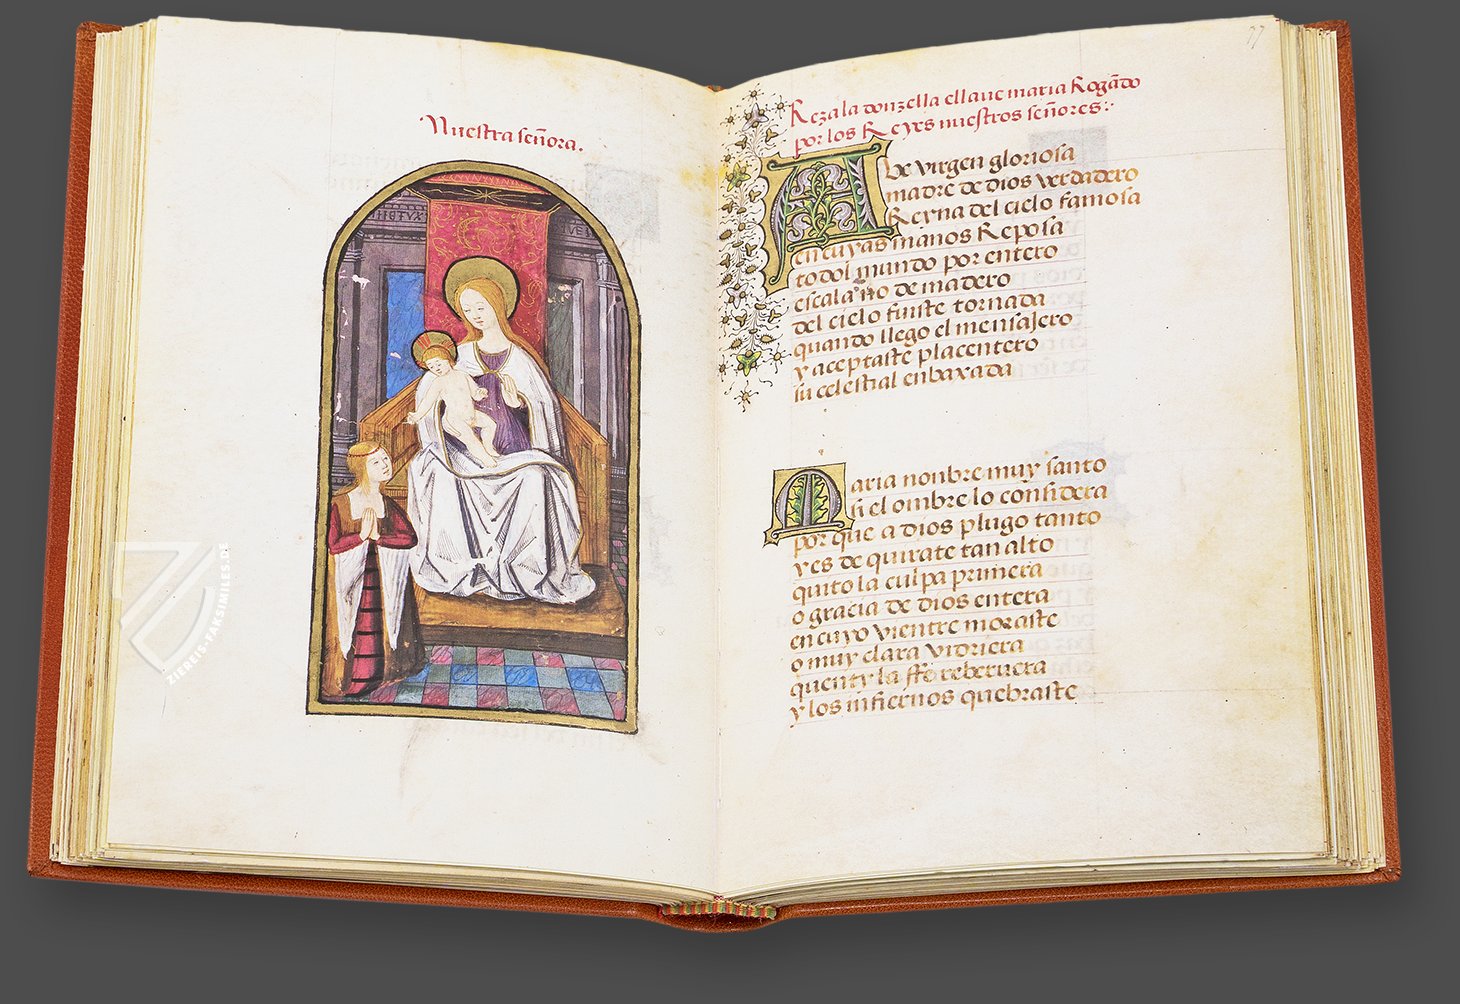 Nuestra señora.
77
Reza la donzella ell ave maria Rogādo
por los Reyes nuestros señores:·
ABe virgen gloriosa
madre de dios verdadero
Reyna del cielo famosa
en cuyas manos Reposa
todol mundo por entero
escala no de madero
del cielo fuiste tornada
quando llego el mensajero
y aceptaste placentero
su celestial enbaxada
Maria nonbre muy santo
si el ombre lo considera
por que a dios plugo tanto
yes de quitate tan alto
quito la culpa primera
o gracia de dios entera
en cuyo vientre moraste
o muy clara vidriera
quen ty la ffe rebervera
y los infiernos quebraste
ZIEREIS-FAKSIMILES.DE